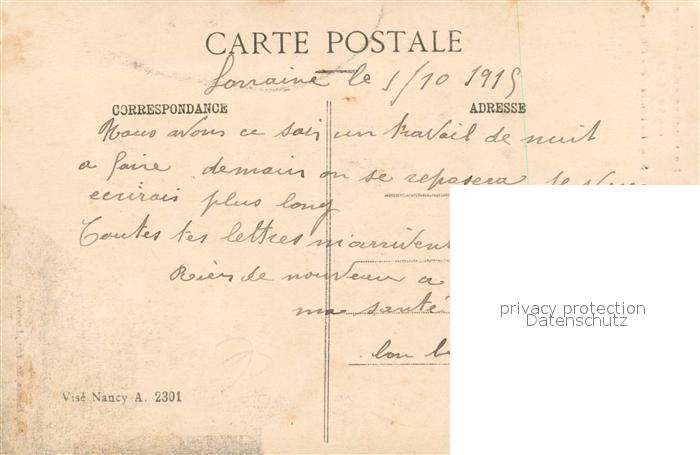 CARTE POSTALE
Lorraine le 5/10 1915
CORRESPONDANCE
ADRESSE
Nous avons ce soir un travail de nuit
a faire demain on se reposera Je
ecrirais plus long
Toutes tes lettres m'arrivent
Rien de nouveau a
ma santé
bon
privacy protection
Datenschutz
Visé Nancy A. 2301